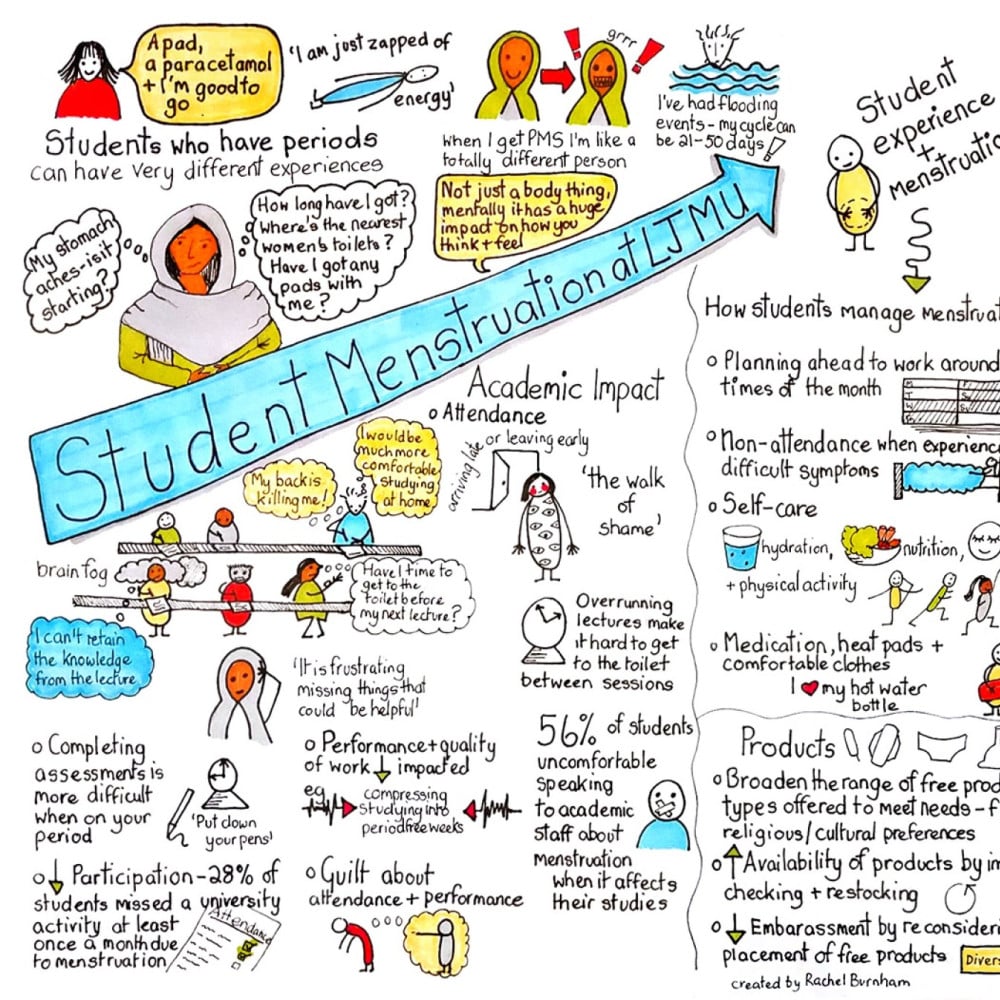 A pad,
a paracetamol
+ I'm good to
go
'I am just zapped of
energy'
grrr
Students who have periods
can have very different experiences
When I get PMS I'm like a
totally different person
I've had flooding
events - my cycle can
be 21-50 days!
My stomach
aches - is it
starting?
How long have I got?
Where's the nearest
women's toilets?
Have I got any
pads with
me?
Not just a body thing,
mentally it has a huge
impact on how you
think + feel
Student Menstruation at LJMU
Academic Impact
o Attendance
arriving late
or leaving early
'the walk
of
shame'
My back is
killing me!
I would be
much more
comfortable
studying
at home
brain fog
Have I time to
get to the
toilet before
my next lecture?
I can't retain
the knowledge
from the lecture
Overrunning
lectures make
it hard to get
to the toilet
between sessions
'It is frustrating
missing things that
could be helpful'
o Completing
assessments is
more difficult
when on your
period
'Put down
your pens'
o Performance + quality
of work ↓ impacted
eg
compressing
studying into
period free weeks
56% of students
uncomfortable
speaking
to academic
staff about
menstruation
when it affects
their studies
o ↓ Participation - 28% of
students missed a university
activity at least
once a month due
to menstruation
Attendance
o Guilt about
attendance + performance
Student
experience
+
Menstruatio
How students manage menstruat
o Planning ahead to work around
times of the month
M
T
W
o Non-attendance when experienc
difficult symptoms
o Self-care
hydration,
nutrition,
+ physical activity
o Medication, heat pads +
comfortable clothes
I ♥ my hot water
bottle
Products
o Broaden the range of free prod
types offered to meet needs - f
religious/cultural preferences
o ↑ Availability of products by in
checking + restocking
o ↓ Embarassment by reconsideri
placement of free products
Divers
created by Rachel Burnham